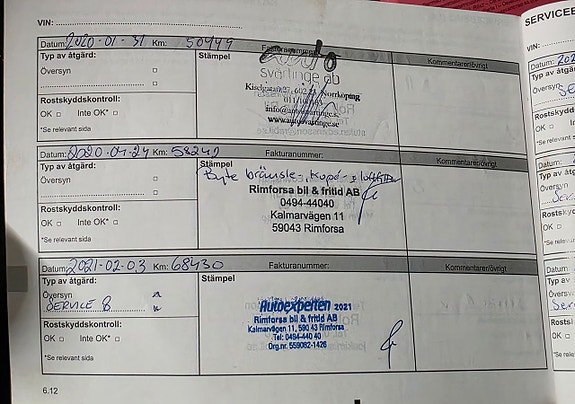 VIN:
Datum: 2020-01-31 Km: 50499
Typ av åtgärd:
Översyn
Stämpel
svärtinge ab
Kiselgatan 27, 602 23 Norrköping
www.autosvartinge.se
Kommentarer/övrigt
Rostskyddskontroll:
OK Inte OK*
*Se relevant sida
Datum: 2020-04-24 Km: 58242
Fakturanummer:
Kommentarer/övrigt
Typ av åtgärd:
Översyn
Stämpel
Byte bränsle-, kupé-
Rimforsa bil & fritid AB
0494-44040
Kalmarvägen 11
59043 Rimforsa
Rostskyddskontroll:
OK Inte OK*
*Se relevant sida
Datum: 2021-02-03 Km: 68430
Fakturanummer:
Kommentarer/övrigt
Typ av åtgärd:
Översyn
SERVICE B
Stämpel
Autoexperten 2021
Rimforsa bil & fritid AB
Kalmarvägen 11, 590 43 Rimforsa
Tel: 0494-440 40
Org.nr. 559082-1426
Rostskyddskontroll:
OK Inte OK*
*Se relevant sida
6.12
SERVICEB
VIN:
Datum: 202
Typ av åtgärd:
Översyn
Rostskyd
OK
*Se relev
Datum:
Typ av
Översyn
Rostsky
OK
*Se relev
Datum:
Typ av
Översy
Rostsk
OK
*Se rel